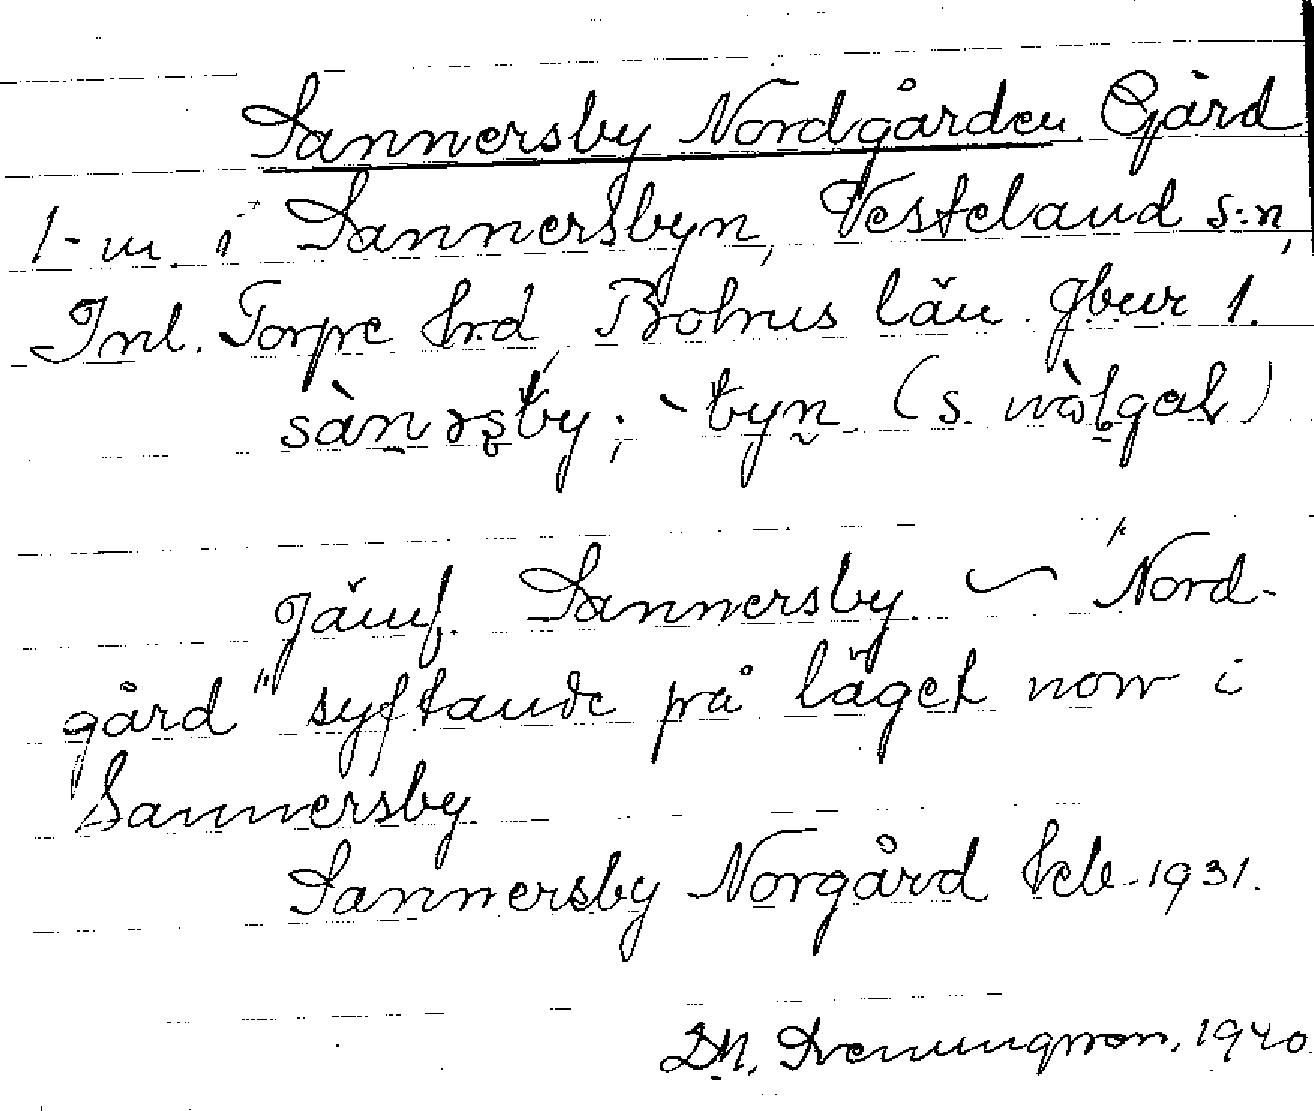 Sannersby Nordgården Gård
1-m i Sannersbyn, Vesteland s:n,
Inl. Torpe hrd, Bohus län. Jbnr 1.
sànərsby; -byn (s. nòlgaḷ)
Jämf. Sannersby ~ "Nord-
gård" syftande på läget norr i
Sannersby
Sannersby Norgård Ieb. 1931.
1940